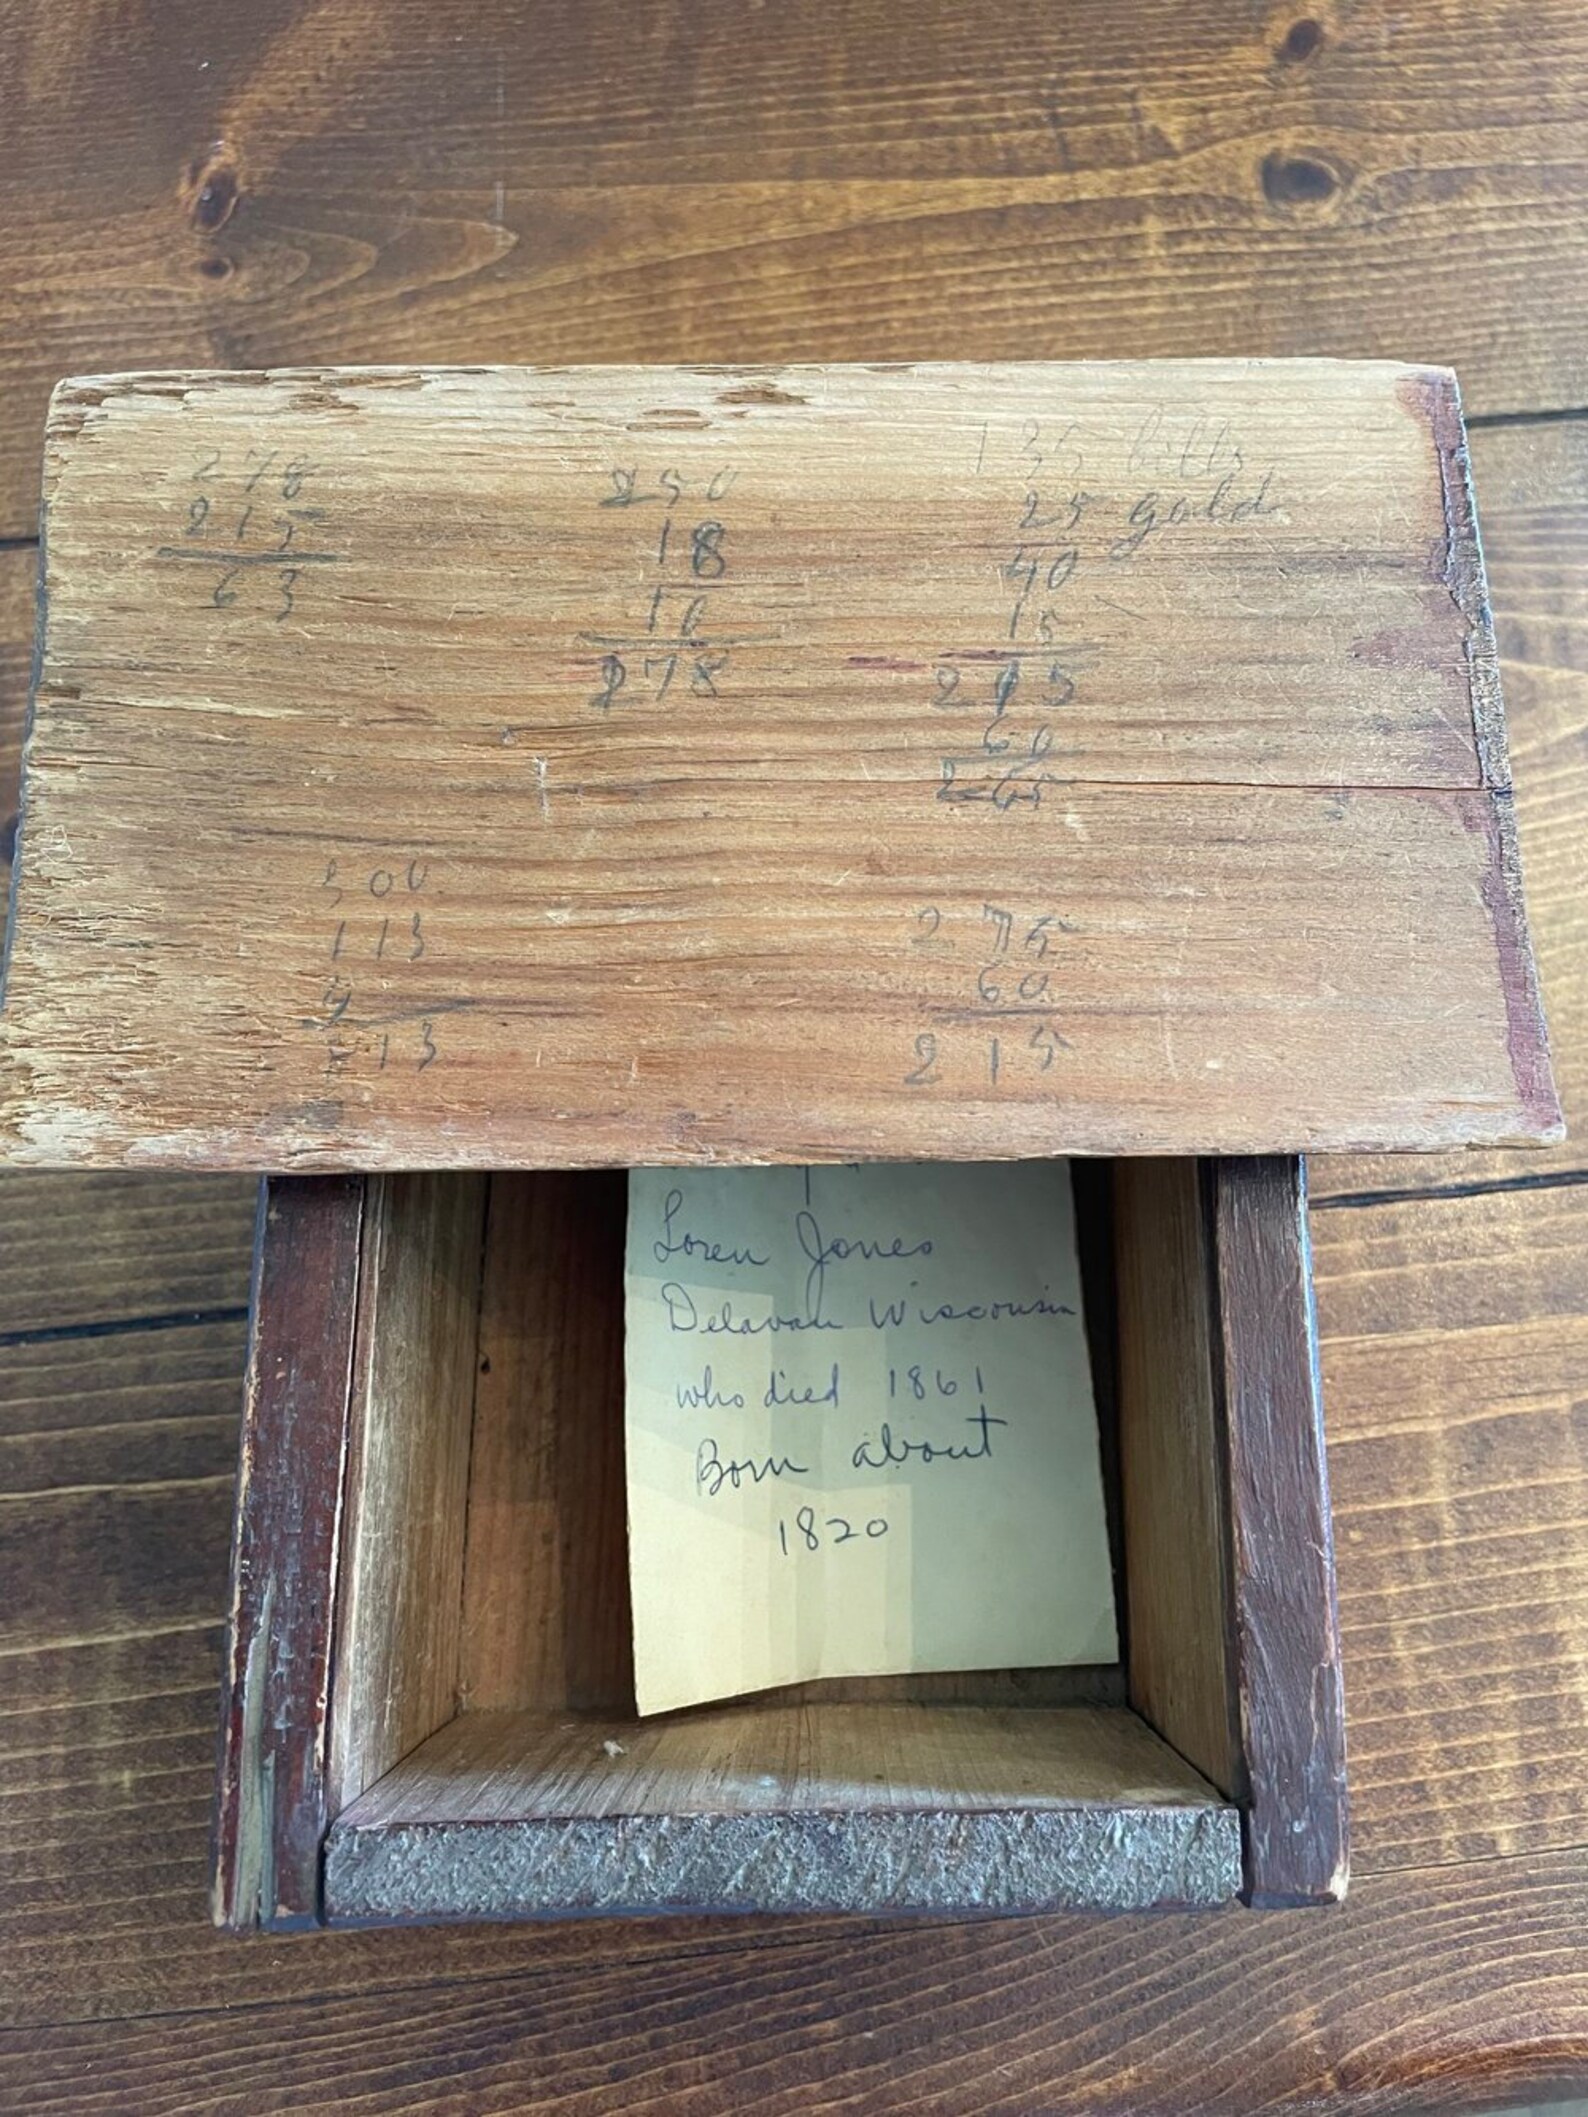 278
215
63
250
18
10
278
135 bills
25 gold
40
15
215
60
265
500
113
13
275
60
215
Loren Jones
Delavan Wisconsin
who died 1861
Born about
1820